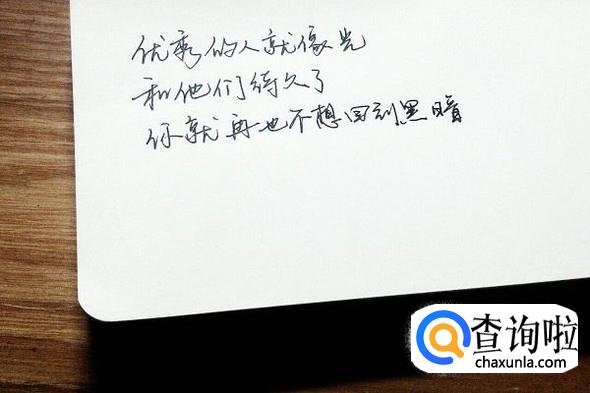 优秀的人就像光
和他们待久了
你就再也不想回到黑暗
查询啦
chaxunla.com